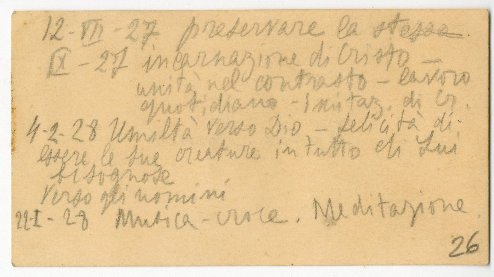 12-VIII-27 preservare la stessa
IX-27 incarnazione di Cristo –
unità nel contrasto – lavoro
quotidiano – Imitaz. di Cr.
4-2-28 Umiltà verso Dio – felicità di
essere le sue creature in tutto di Lui
bisognose
Verso gli uomini
22-I-28 Mistica-croce. Meditazione.
26